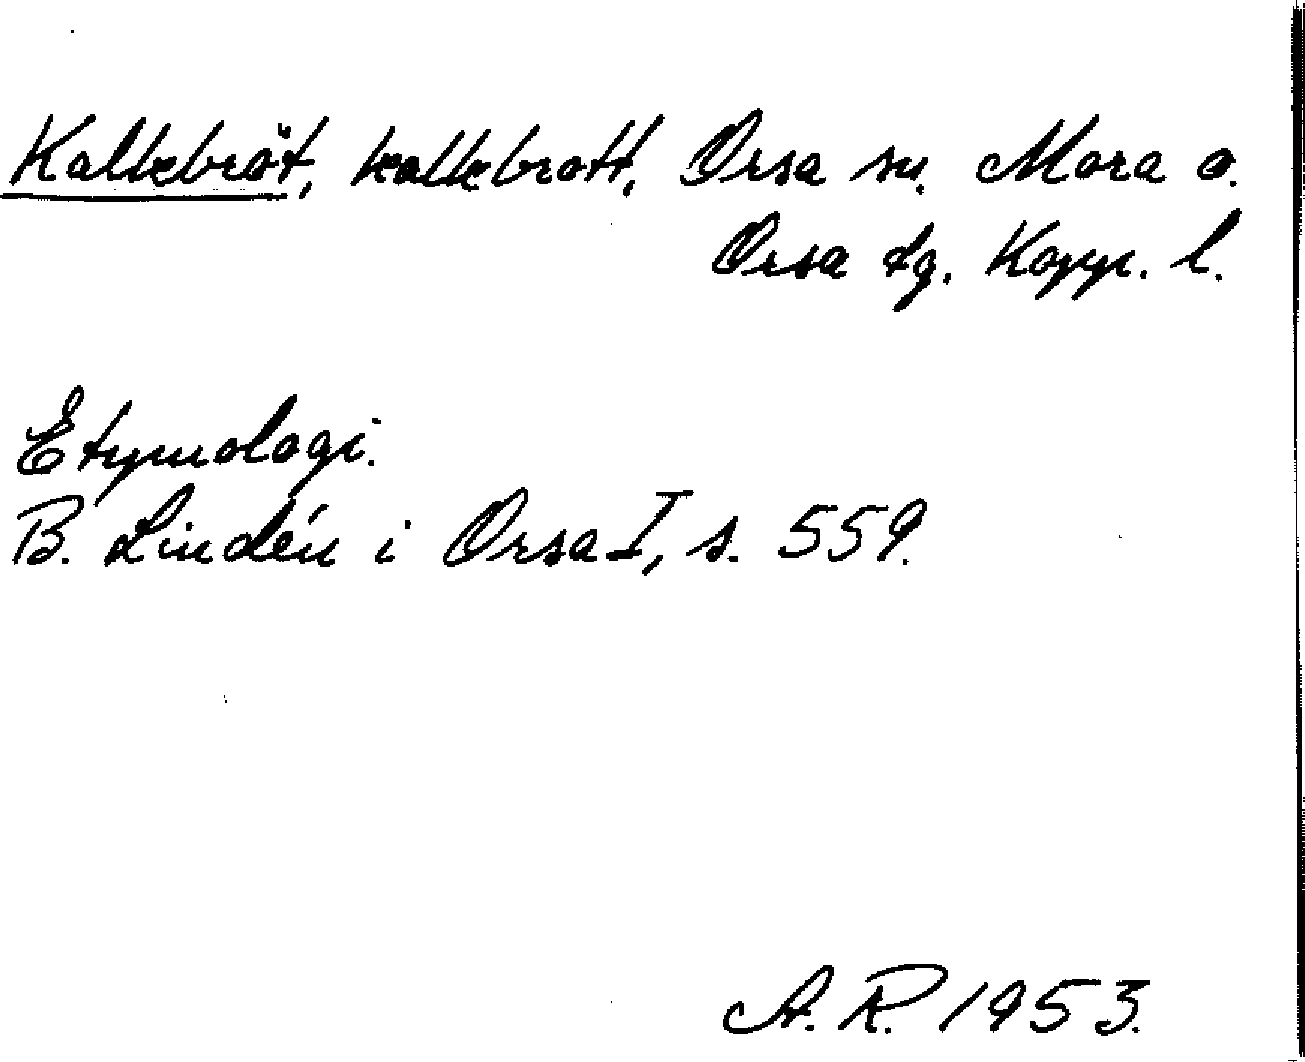 Kallkbröt, kalkbrott, Orsa sn. Mora o.
Orsa tg. Kopp. l.
Etymologi.
B. Lindén i Orsa I, s. 559.
A. R. 1953.